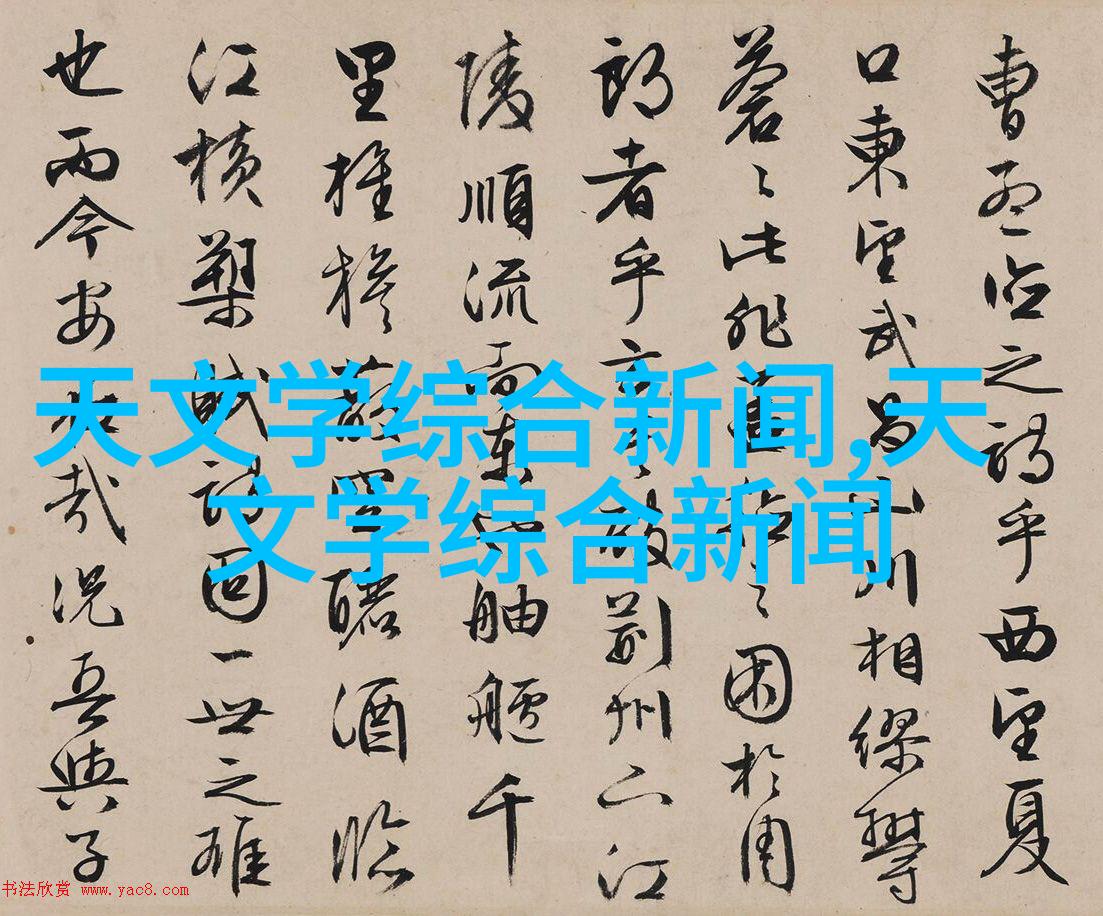 曹孟德之詩乎西望夏
口東望武昌山川相繆鬱
蒼〻此非孟德之困於周
郎者乎方其破荊州下江
陵順流而東也舳艫千
里旌旗蔽空釃酒臨
江橫槊賦詩固一世之雄
也而今安在哉況吾與子
天文学综合新闻,天
文学综合新闻
书法欣赏 www.yac8.com